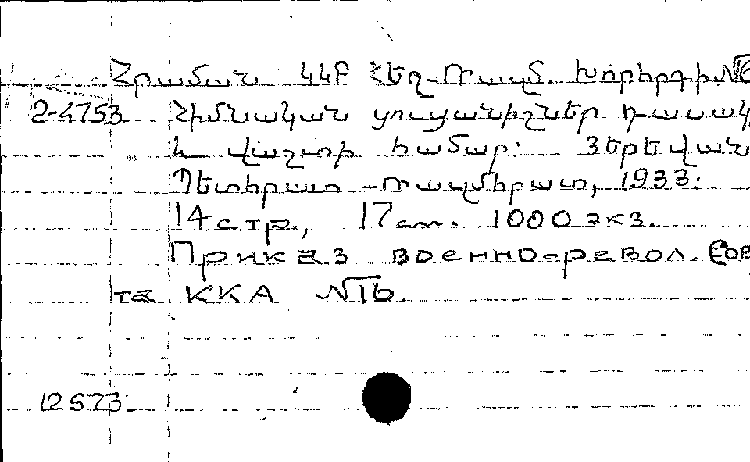 Հրաման ԿԿԲ Հեղ-Ռազմ. Խորհրդի №6
2-4753 Հիմնական ցուցանիշներ դասակ
և վաշտի համար: Յերևան
Պետհրատ-Ռազմհրատ, 1933:
14 стр, 17 см. 1000 экз.
Приказ военно-револ. Сов
та ККА №6.
12573